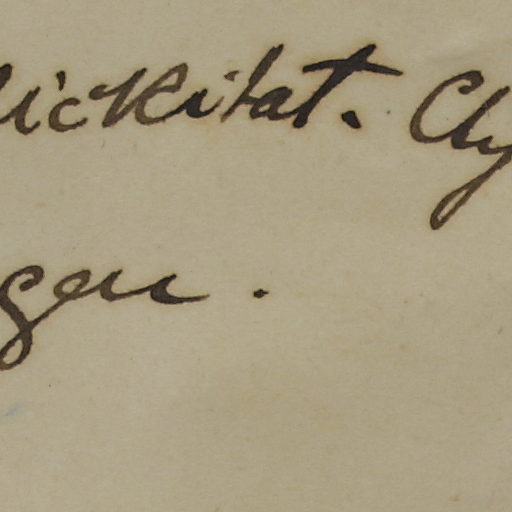 lickitat. Cly
gen.